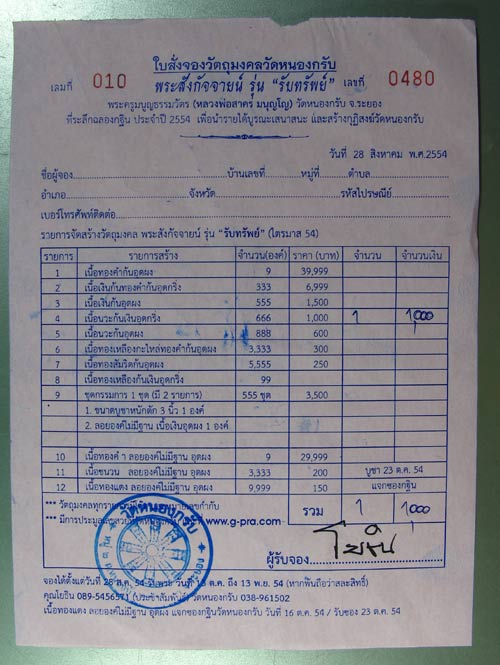 ใบสั่งจองวัตถุมงคลวัดหนองกรับ
เล่มที่ 010 พระสังกัจจายน์ รุ่น "รับทรัพย์" เลขที่ 0480
พระครูมนูญธรรมวัตร (หลวงพ่อสาคร มนุญโญ) วัดหนองกรับ จ.ระยอง
ที่ระลึกฉลองกฐิน ประจำปี 2554 เพื่อนำรายได้บูรณะเสนาสนะ และสร้างกุฏิสงฆ์วัดหนองกรับ
วันที่ 28 สิงหาคม พ.ศ.2554
ชื่อผู้จอง บ้านเลขที่ หมู่ที่ ตำบล
อำเภอ จังหวัด รหัสไปรษณีย์
เบอร์โทรศัพท์ติดต่อ
รายการจัดสร้างวัตถุมงคล พระสังกัจจายน์ รุ่น "รับทรัพย์" (ไตรมาส 54)
รายการ รายการสร้าง จำนวน(องค์) ราคา (บาท) จำนวน จำนวนเงิน
1 เนื้อทองคำก้นอุดผง 9 39,999
2 เนื้อเงินก้นทองคำอุดกริ่ง 333 6,999
3 เนื้อเงินก้นอุดผง 555 1,500
4 เนื้อนวะก้นเงินอุดกริ่ง 666 1,000 1 1,000
5 เนื้อนวะก้นอุดผง 888 600
6 เนื้อทองเหลืองกะไหล่ทองคำก้นอุดผง 3,333 300
7 เนื้อทองสัมริดก้นอุดผง 5,555 250
8 เนื้อทองเหลืองก้นเงินอุดกริ่ง 99
9 ชุดกรรมการ 1 ชุด (มี 2 รายการ) 555 ชุด 3,500
1. ขนาดบูชาหน้าตัก 3 นิ้ว 1 องค์
2. ลอยองค์ไม่มีฐาน เนื้อเงินอุดผง 1 องค์
10 เนื้อทองคำ ลอยองค์ไม่มีฐาน อุดผง 9 29,999
11 เนื้อชนวน ลอยองค์ไม่มีฐาน อุดผง 3,333 200 บูชา 23 ต.ค. 54
12 เนื้อทองแดง ลอยองค์ไม่มีฐาน อุดผง 9,999 150 แจกซองกฐิน
*** วัตถุมงคลทุกรายการ หมายเลขกำกับ รวม 1 1,000
*** มีการประมูล www.g-pra.com
วัดหนองกรับ
ผู้รับจอง โยธิน
จองได้ตั้งแต่วันที่ 28 ส.ค. 54 ต.ค. ถึง 13 พ.ย. 54 (หากพ้นถือว่าสละสิทธิ์)
คุณโยธิน 089-5456571 (ประชาสัมพันธ์) วัดหนองกรับ 038-961502
เนื้อทองแดง ลอยองค์ไม่มีฐาน อุดผง แจกซองกฐินวัดหนองกรับ วันที่ 16 ต.ค. 54 / รับซอง 23 ต.ค. 54